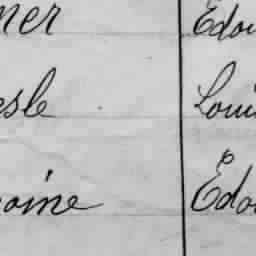 ner Edou
esle Loui
oine Edou